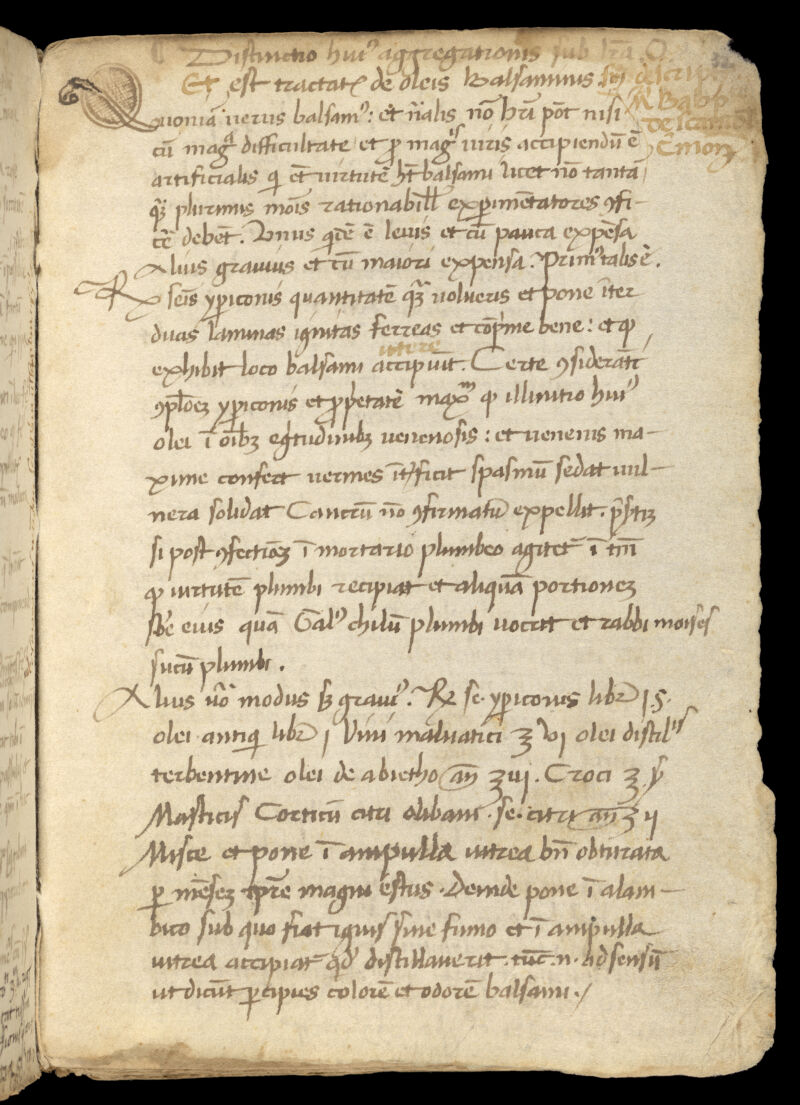 Distinctio hui⁹ aggregationis sub lr̃a O
Et est tractat⁹ de oleis Balsaminus
Quoniã uerus balsam⁹: et ñalis nõ hr̃i põt nisi
cũ magᵃ difficultate et ꝓ magⁱˢ uiris accipiendũ ẽ
artificialis qi et̃ uirtutẽ ht̃ balsami licet nõ tantã
qꝫ plurimis mõis rationabilĩ exꝑimentatores ꝯfi-
cẽ debẽt. Unus qidẽ ẽ leuis et cũ pauca expẽsa
Alius grauius et cũ maiori expensa. Prim⁹ talis ẽ.
℞ seĩs ypiconis quantitatẽ qꝫ uolueris et pone ĩter
duas laminas ignitas ferreas et cõp̃me bene: et qᵈ
uttere
exhibit loco balsami accipuit. Certe ꝯsiderãti
ꝯplõeꝫ ypiconis et ꝓpetatẽ maxᵐ qᵈ illinitio hui⁹
olei ĩ oĩbꝫ egtudinibꝫ uenenosis: et uenenis ma-
xime confert uermes ĩt̃ficit spasmũ sedat uul-
nera solidat Cancrũ nõ ꝯfirmatũ expellit. p̃sertiꝫ
si post ꝯfectiõeꝫ ĩ mortario plumbeo agitet ĩ tm̃
qᵈ uirtutẽ plumbi recipiat et aliquã portioneꝫ
sb̃e eius quã Gal⁹ chilũ plumbi uocat et rabbi moises
sucũ plumbi.
Alius uõ modus sꝫ graui⁹. ℞ se. ypiconis libr̃ 1 s.
olei antiqi libr̃ 1 Vini maluatici ʒ vi olei distilⁱˢ
terbentine olei de abietho añ ʒ vi. Croci ʒ ß
Masticis Corticũ citri olibani. se. citri añ ʒ ij
Misce et pone ĩ ampulla uitrea bñ obturata
ꝑ mẽseꝫ tp̃re magni estus. Deinde pone ĩ alam-
bico sub quo fiat ignis sine fumo et ĩ ampulla
uitrea accipiat qᵈ distillauerit. tũc. n. ad sensũ
ut dicũt ꝑcipies colorẽ et odorẽ balsami.